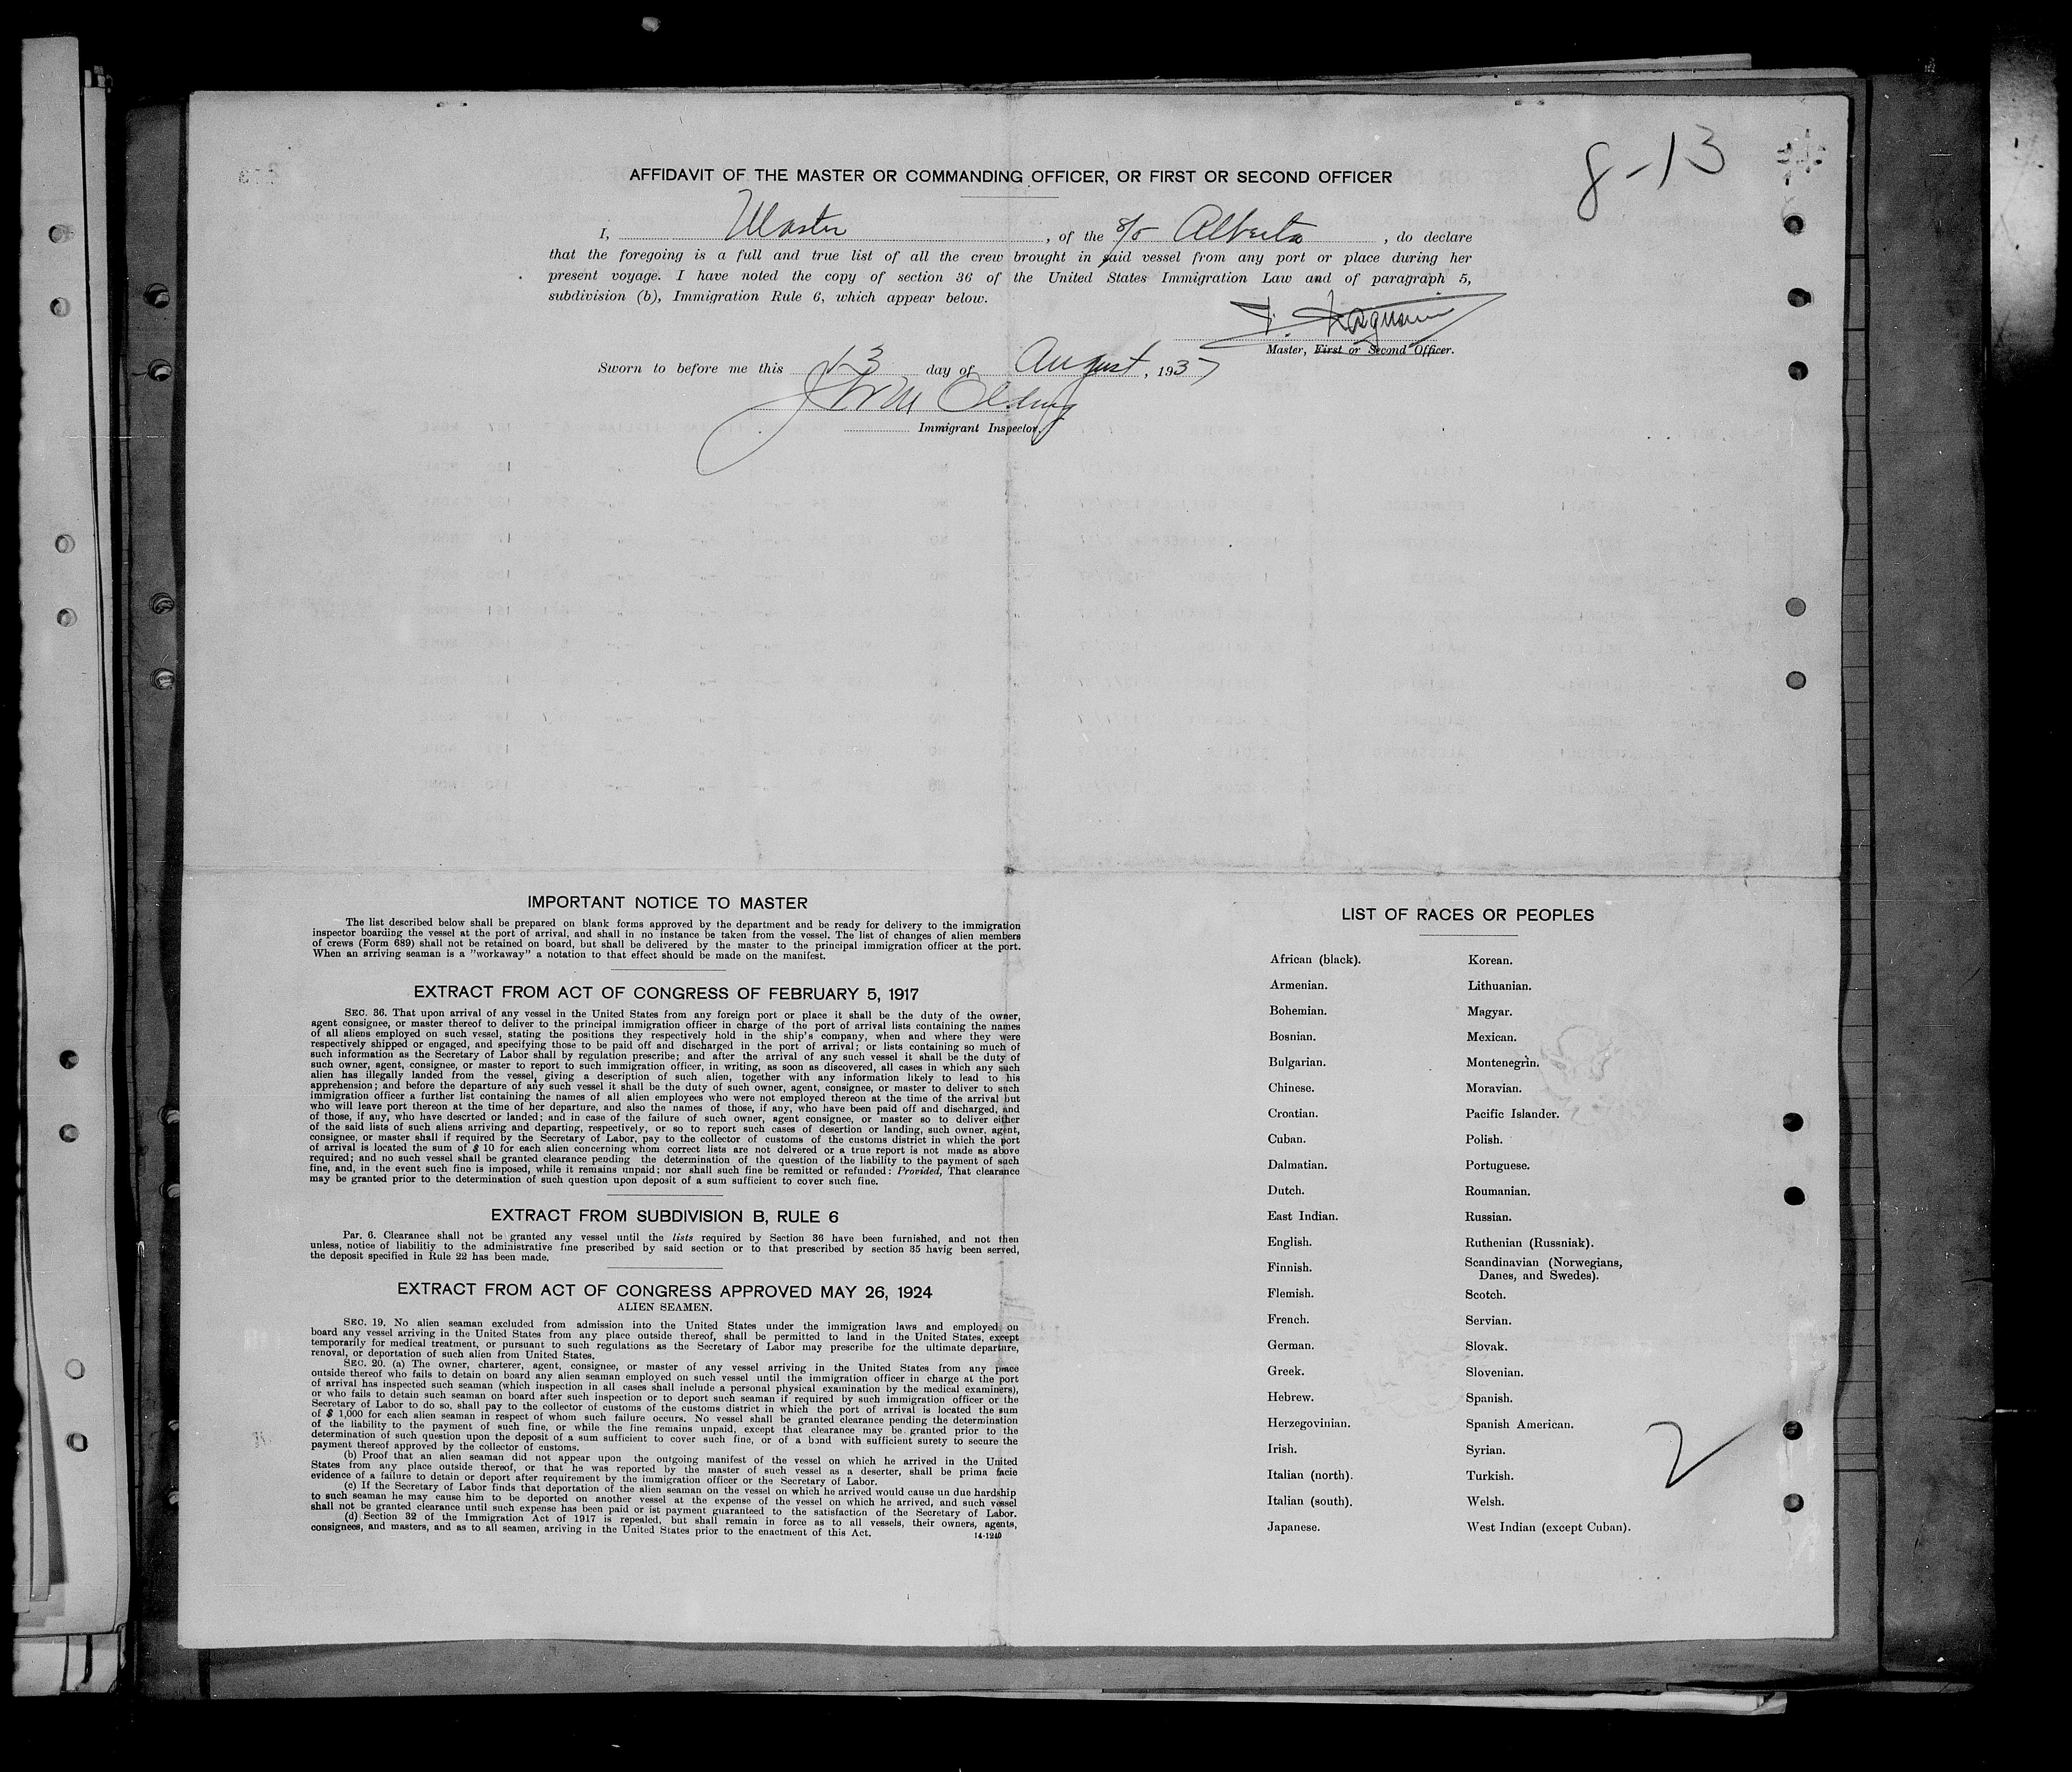 8-13
AFFIDAVIT OF THE MASTER OR COMMANDING OFFICER, OR FIRST OR SECOND OFFICER
I, Master, of the S/S Alberta, do declare
that the foregoing is a full and true list of all the crew brought in said vessel from any port or place during her
present voyage. I have noted the copy of section 36 of the United States Immigration Law and of paragraph 5,
subdivision (b), Immigration Rule 6, which appear below.
Master, First or Second Officer.
Sworn to before me this 13 day of August, 1937
Immigrant Inspector.
IMPORTANT NOTICE TO MASTER
The list described below shall be prepared on blank forms approved by the department and be ready for delivery to the immigration
inspector boarding the vessel at the port of arrival, and shall in no instance be taken from the vessel. The list of changes of alien members
of crews (Form 689) shall not be retained on board, but shall be delivered by the master to the principal immigration officer at the port.
When an arriving seaman is a "workaway" a notation to that effect should be made on the manifest.
EXTRACT FROM ACT OF CONGRESS OF FEBRUARY 5, 1917
SEC. 36. That upon arrival of any vessel in the United States from any foreign port or place it shall be the duty of the owner,
agent consignee, or master thereof to deliver to the principal immigration officer in charge of the port of arrival lists containing the names
of all aliens employed on such vessel, stating the positions they respectively hold in the ship's company, when and where they were
respectively shipped or engaged, and specifying those to be paid off and discharged in the port of arrival; or lists containing so much of
such information as the Secretary of Labor shall by regulation prescribe; and after the arrival of any such vessel it shall be the duty of
such owner, agent, consignee, or master to report to such immigration officer, in writing, as soon as discovered, all cases in which any such
alien has illegally landed from the vessel, giving a description of such alien, together with any information likely to lead to his
apprehension; and before the departure of any such vessel it shall be the duty of such owner, agent, consignee, or master to deliver to such
immigration officer a further list containing the names of all alien employees who were not employed thereon at the time of the arrival but
who will leave port thereon at the time of her departure, and also the names of those, if any, who have been paid off and discharged, and
of those, if any, who have descrted or landed; and in case of the failure of such owner, agent consignee, or master so to deliver either
of the said lists of such aliens arriving and departing, respectively, or so to report such cases of desertion or landing, such owner, agent,
consignee, or master shall if required by the Secretary of Labor, pay to the collector of customs of the customs district in which the port
of arrival is located the sum of $ 10 for each alien concerning whom correct lists are not delvered or a true report is not made as above
required; and no such vessel shall be granted clearance pending the determination of the question of the liability to the payment of such
fine, and, in the event such fine is imposed, while it remains unpaid; nor shall such fine be remitted or refunded: Provided, That clearance
may be granted prior to the determination of such question upon deposit of a sum sufficient to cover such fine.
EXTRACT FROM SUBDIVISION B, RULE 6
Par. 6. Clearance shall not be granted any vessel until the lists required by Section 36 have been furnished, and not then
unless, notice of liabilitiy to the administrative fine prescribed by said section or to that prescribed by section 35 havig been served,
the deposit specified in Rule 22 has been made.
EXTRACT FROM ACT OF CONGRESS APPROVED MAY 26, 1924
ALIEN SEAMEN.
SEC. 19. No alien seaman excluded from admission into the United States under the immigration laws and employed on
board any vessel arriving in the United States from any place outside thereof, shall be permitted to land in the United States, except
temporarily for medical treatment, or pursuant to such regulations as the Secretary of Labor may prescribe for the ultimate departure,
renoval, or deportation of such alien from United States.
SEC. 20. (a) The owner, charterer, agent, consignee, or master of any vessel arriving in the United States from any place
outside thereof who fails to detain on board any alien seaman employed on such vessel until the immigration officer in charge at the port
of arrival has inspected such seaman (which inspection in all cases shall include a personal physical examination by the medical examiners),
or who fails to detain such seaman on board after such inspection or to deport such seaman if required by such immigration officer or the
Secretary of Labor to do so, shall pay to the collector of customs of the customs district in which the port of arrival is located the sum
of $ 1,000 for each alien seaman in respect of whom such failure occurs. No vessel shall be granted clearance pending the determination
of the liability to the payment of such fine, or while the fine remains unpaid, except that clearance may be granted prior to the
determination of such question upon the deposit of a sum sufficient to cover such fine, or of a bond with sufficient surety to secure the
payment thereof approved by the collector of customs.
(b) Proof that an alien seaman did not appear upon the outgoing manifest of the vessel on which he arrived in the United
States from any place outside thereof, or that he was reported by the master of such vessel as a deserter, shall be prima facie
evidence of a failure to detain or deport after requirement by the immigration officer or the Secretary of Labor.
(c) If the Secretary of Labor finds that deportation of the alien seaman on the vessel on which he arrived would cause un due hardship
to such seaman he may cause him to be deported on another vessel at the expense of the vessel on which he arrived, and such vessel
shall not be granted clearance until such expense has been paid or ist payment guaranteed to the satisfaction of the Secretary of Labor.
(d) Section 32 of the Immigration Act of 1917 is repealed, but shall remain in force as to all vessels, their owners, agents,
consignees, and masters, and as to all seamen, arriving in the United States prior to the enactment of this Act.
14-1240
LIST OF RACES OR PEOPLES
African (black).
Armenian.
Bohemian.
Bosnian.
Bulgarian.
Chinese.
Croatian.
Cuban.
Dalmatian.
Dutch.
East Indian.
English.
Finnish.
Flemish.
French.
German.
Greek.
Hebrew.
Herzegovinian.
Irish.
Italian (north).
Italian (south).
Japanese.
Korean.
Lithuanian.
Magyar.
Mexican.
Montenegrin.
Moravian.
Pacific Islander.
Polish.
Portuguese.
Roumanian.
Russian.
Ruthenian (Russniak).
Scandinavian (Norwegians,
Danes, and Swedes).
Scotch.
Servian.
Slovak.
Slovenian.
Spanish.
Spanish American.
Syrian.
Turkish.
Welsh.
West Indian (except Cuban).
2